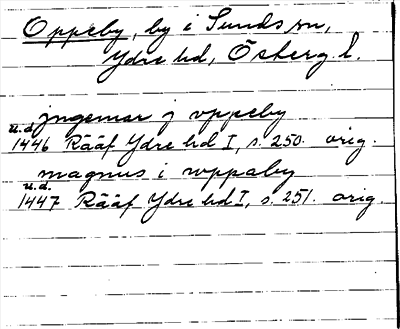 Oppeby, by i Sunds sn,
Ydre hd, Österg. l.
jngemar j vppeby
u.d. 1446 Rääf Ydre hd I, s. 250. orig.
magnus i wppaby
u.d. 1447 Rääf Ydre hd I, s. 251. orig.